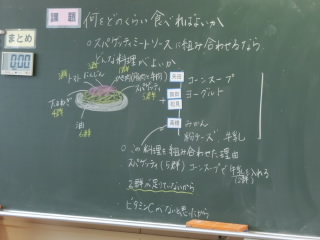 課題
何をどのくらい食べればよいか
まとめ
○スパゲッティミートソースに組み合わせるなら
どんな料理がよいか
トマト
にんじん
スパゲッティ
5群
玉ねぎ
4群
油
6群
コーンスープ
ヨーグルト
みかん
粉チーズ 牛乳
○この料理を組み合わせた理由
スパゲッティ(5群) コーンスープで牛乳を入れる
(2群)
2群が足りていないから
ビタミンCがないと思ったから